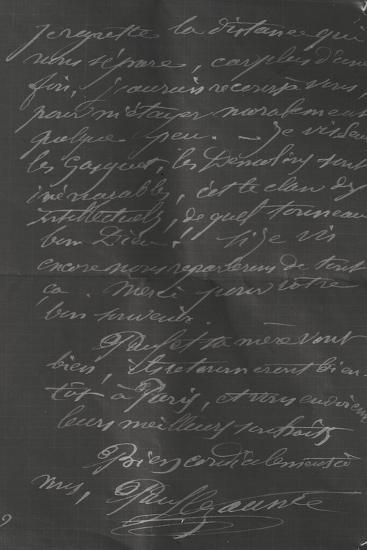 je regrette la distance qui
nous sépare, car plus d'une
fois, j'aurais recours à vous,
pour m'étayer moralement
quelque peu. — Je vis seul
les Gasquet, les Demolins sont
inénarrables, c'est le clan des
intellectuels, de quel tonneau
bon Dieu! Si je vis
encore nous reparlerons de tout
ça. Merci pour votre
bon souvenir.
Paul et sa mère vont
bien, ils retourneront bien-
tôt à Paris, et vous envoient
leurs meilleurs souhaits
Bien cordialement à
vous, Paul Cezanne